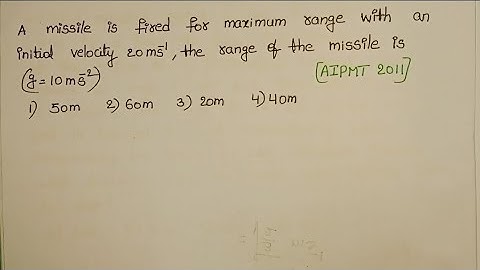 A missile is fired for maximum range with an
initial velocity 20ms⁻¹, the range of the missile is
(g=10ms⁻²) [AIPMT 2011]
1) 50m 2) 60m 3) 20m 4) 40m